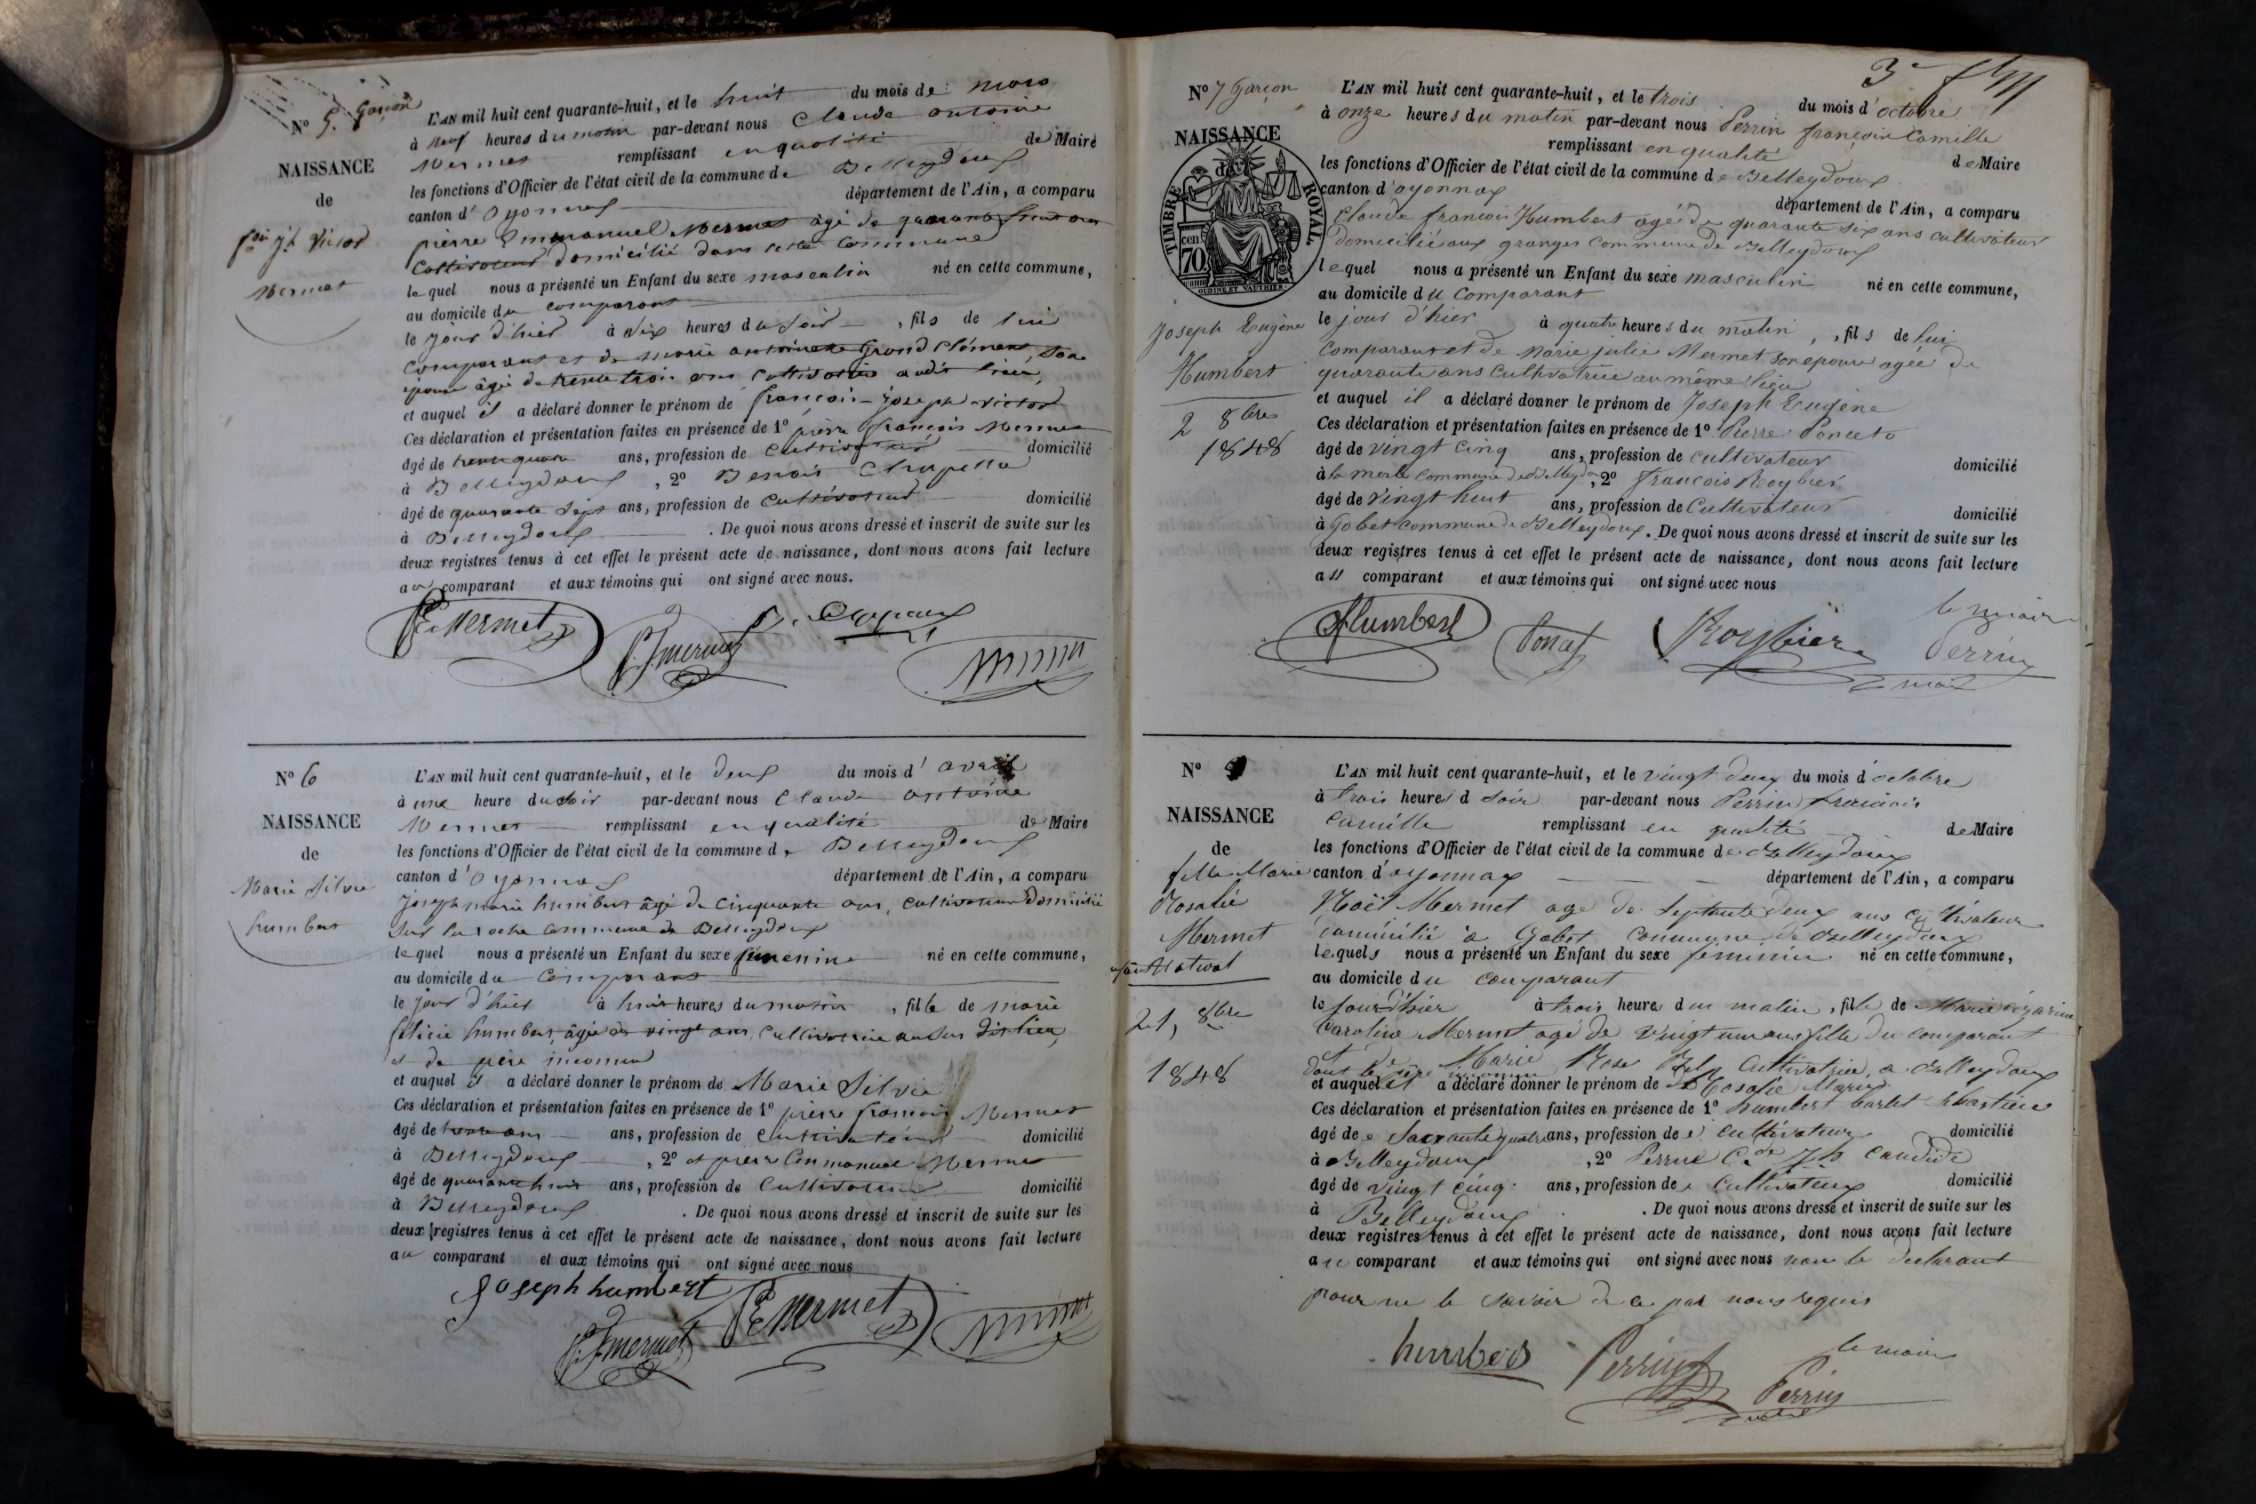 N° 5. Garçon
NAISSANCE
de
fois jh Victor
Mermet
L'AN mil huit cent quarante-huit, et le huit du mois de mars
à neuf heures du matin par-devant nous Claude antoine
Mermet remplissant en qualité de Maire
les fonctions d'Officier de l'état civil de la commune de Belleydoux
canton d'Oyonnax département de l'Ain, a comparu
pierre Emmanuel Mermet âgé de quarante huit ans
Cultivateur domicilié dans cette commune
lequel nous a présenté un Enfant du sexe masculin né en cette commune,
au domicile du comparant
le jour d'hier à dix heures du soir, fils de lui
comparant et de marie antoinette Grand Clément, son
épouse âgée de trente trois ans Cultivatrice audit lieu,
et auquel il a déclaré donner le prénom de françois-joseph victor
Ces déclaration et présentation faites en présence de 1° pierre françois Mermet
âgé de trente quatre ans, profession de Cultivateur domicilié
à Belleydoux, 2° Benoit Chapelle
âgé de quarante sept ans, profession de Cultivateur domicilié
à Belleydoux. De quoi nous avons dressé et inscrit de suite sur les
deux registres tenus à cet effet le présent acte de naissance, dont nous avons fait lecture
au comparant et aux témoins qui ont signé avec nous.
PE Mermet
P. f mermet
N° 6
NAISSANCE
de
Marie Silvie
humbert
L'AN mil huit cent quarante-huit, et le deux du mois d'avril
à une heure du soir par-devant nous Claude antoine
Mermet remplissant en qualité de Maire
les fonctions d'Officier de l'état civil de la commune de Belleydoux
canton d'Oyonnax département de l'Ain, a comparu
joseph marie humbert âgé de Cinquante ans, cultivateur domicilié
sur la roche commune de Belleydoux
lequel nous a présenté un Enfant du sexe féminine né en cette commune,
au domicile du comparant
le jour d'hier à huit heures du matin, fille de marie
félicie humbert, âgée de vingt ans, Cultivatrice au dit lieu
et de père inconnu
et auquel il a déclaré donner le prénom de Marie Silvie
Ces déclaration et présentation faites en présence de 1° pierre françois Mermet
âgé de trente ans ans, profession de cultivateur domicilié
à Belleydoux, 2° et pierre Emmanuel Mermet
âgé de quarante huit ans, profession de Cultivateur domicilié
à Belleydoux. De quoi nous avons dressé et inscrit de suite sur les
deux registres tenus à cet effet le présent acte de naissance, dont nous avons fait lecture
au comparant et aux témoins qui ont signé avec nous
Joseph humbert
PE Mermet
P. f mermet
3e
N° 7 Garçon
NAISSANCE
de
TIMBRE ROYAL
70 cen
Joseph Eugène
Humbert
2 8bre
1848
L'AN mil huit cent quarante-huit, et le trois du mois d'octobre
à onze heures du matin par-devant nous Perrin françois Camille
remplissant en qualité de Maire
les fonctions d'Officier de l'état civil de la commune de Belleydoux
canton d'oyonnax département de l'Ain, a comparu
Claude françois Humbert âgé de quarante six ans cultivateur
domicilié aux granges commune de Belleydoux
lequel nous a présenté un Enfant du sexe masculin né en cette commune,
au domicile du Comparant
le jour d'hier à quatre heures du matin, fils de lui
comparant et de Marie julie Mermet son épouse agée de
quarante ans Cultivatrice au même lieu
et auquel il a déclaré donner le prénom de Joseph Eugène
Ces déclaration et présentation faites en présence de 1° Pierre Poncet
âgé de vingt cinq ans, profession de cultivateur domicilié
à la commune de Belleydoux, 2° françois Roybier
âgé de vingt huit ans, profession de Cultivateur domicilié
à Gobet commune de Belleydoux. De quoi nous avons dressé et inscrit de suite sur les
deux registres tenus à cet effet le présent acte de naissance, dont nous avons fait lecture
au comparant et aux témoins qui ont signé avec nous
Humbert
Roybier
le maire
Perrin
N°
NAISSANCE
de
fille Marie
Rosalie
Mermet
Natural
21, 8bre
1848
L'AN mil huit cent quarante-huit, et le vingt deux du mois d'octobre
à trois heures d soir par-devant nous Perrin francois
Camille remplissant en qualité de Maire
les fonctions d'Officier de l'état civil de la commune de Belleydoux
canton d'oyonnax département de l'Ain, a comparu
Noël Mermet agé de Septante deux ans cultivateur
domicilié à Gobet commune de Belleydoux
lequels nous a présenté un Enfant du sexe féminin né en cette commune,
au domicile du comparant
le jour d'hier à trois heures du matin, fille de Marie
Caroline Mermet agé de vingt un ans fille du comparant
et de Marie Rose cultivatrice a Belleydoux
dont le père inconnu
et auquel il a déclaré donner le prénom de Rosalie Marie
Ces déclaration et présentation faites en présence de 1° humbert
âgé de Soixante quatre ans, profession de cultivateur domicilié
à Belleydoux, 2° Perrin Cde Jph Candide
âgé de vingt cinq ans, profession de Cultivateur domicilié
à Belleydoux. De quoi nous avons dressé et inscrit de suite sur les
deux registres tenus à cet effet le présent acte de naissance, dont nous avons fait lecture
au comparant et aux témoins qui ont signé avec nous non le declarant
pour ne le savoir de ce par nous requis
humbert
Perrin
le maire
Perrin